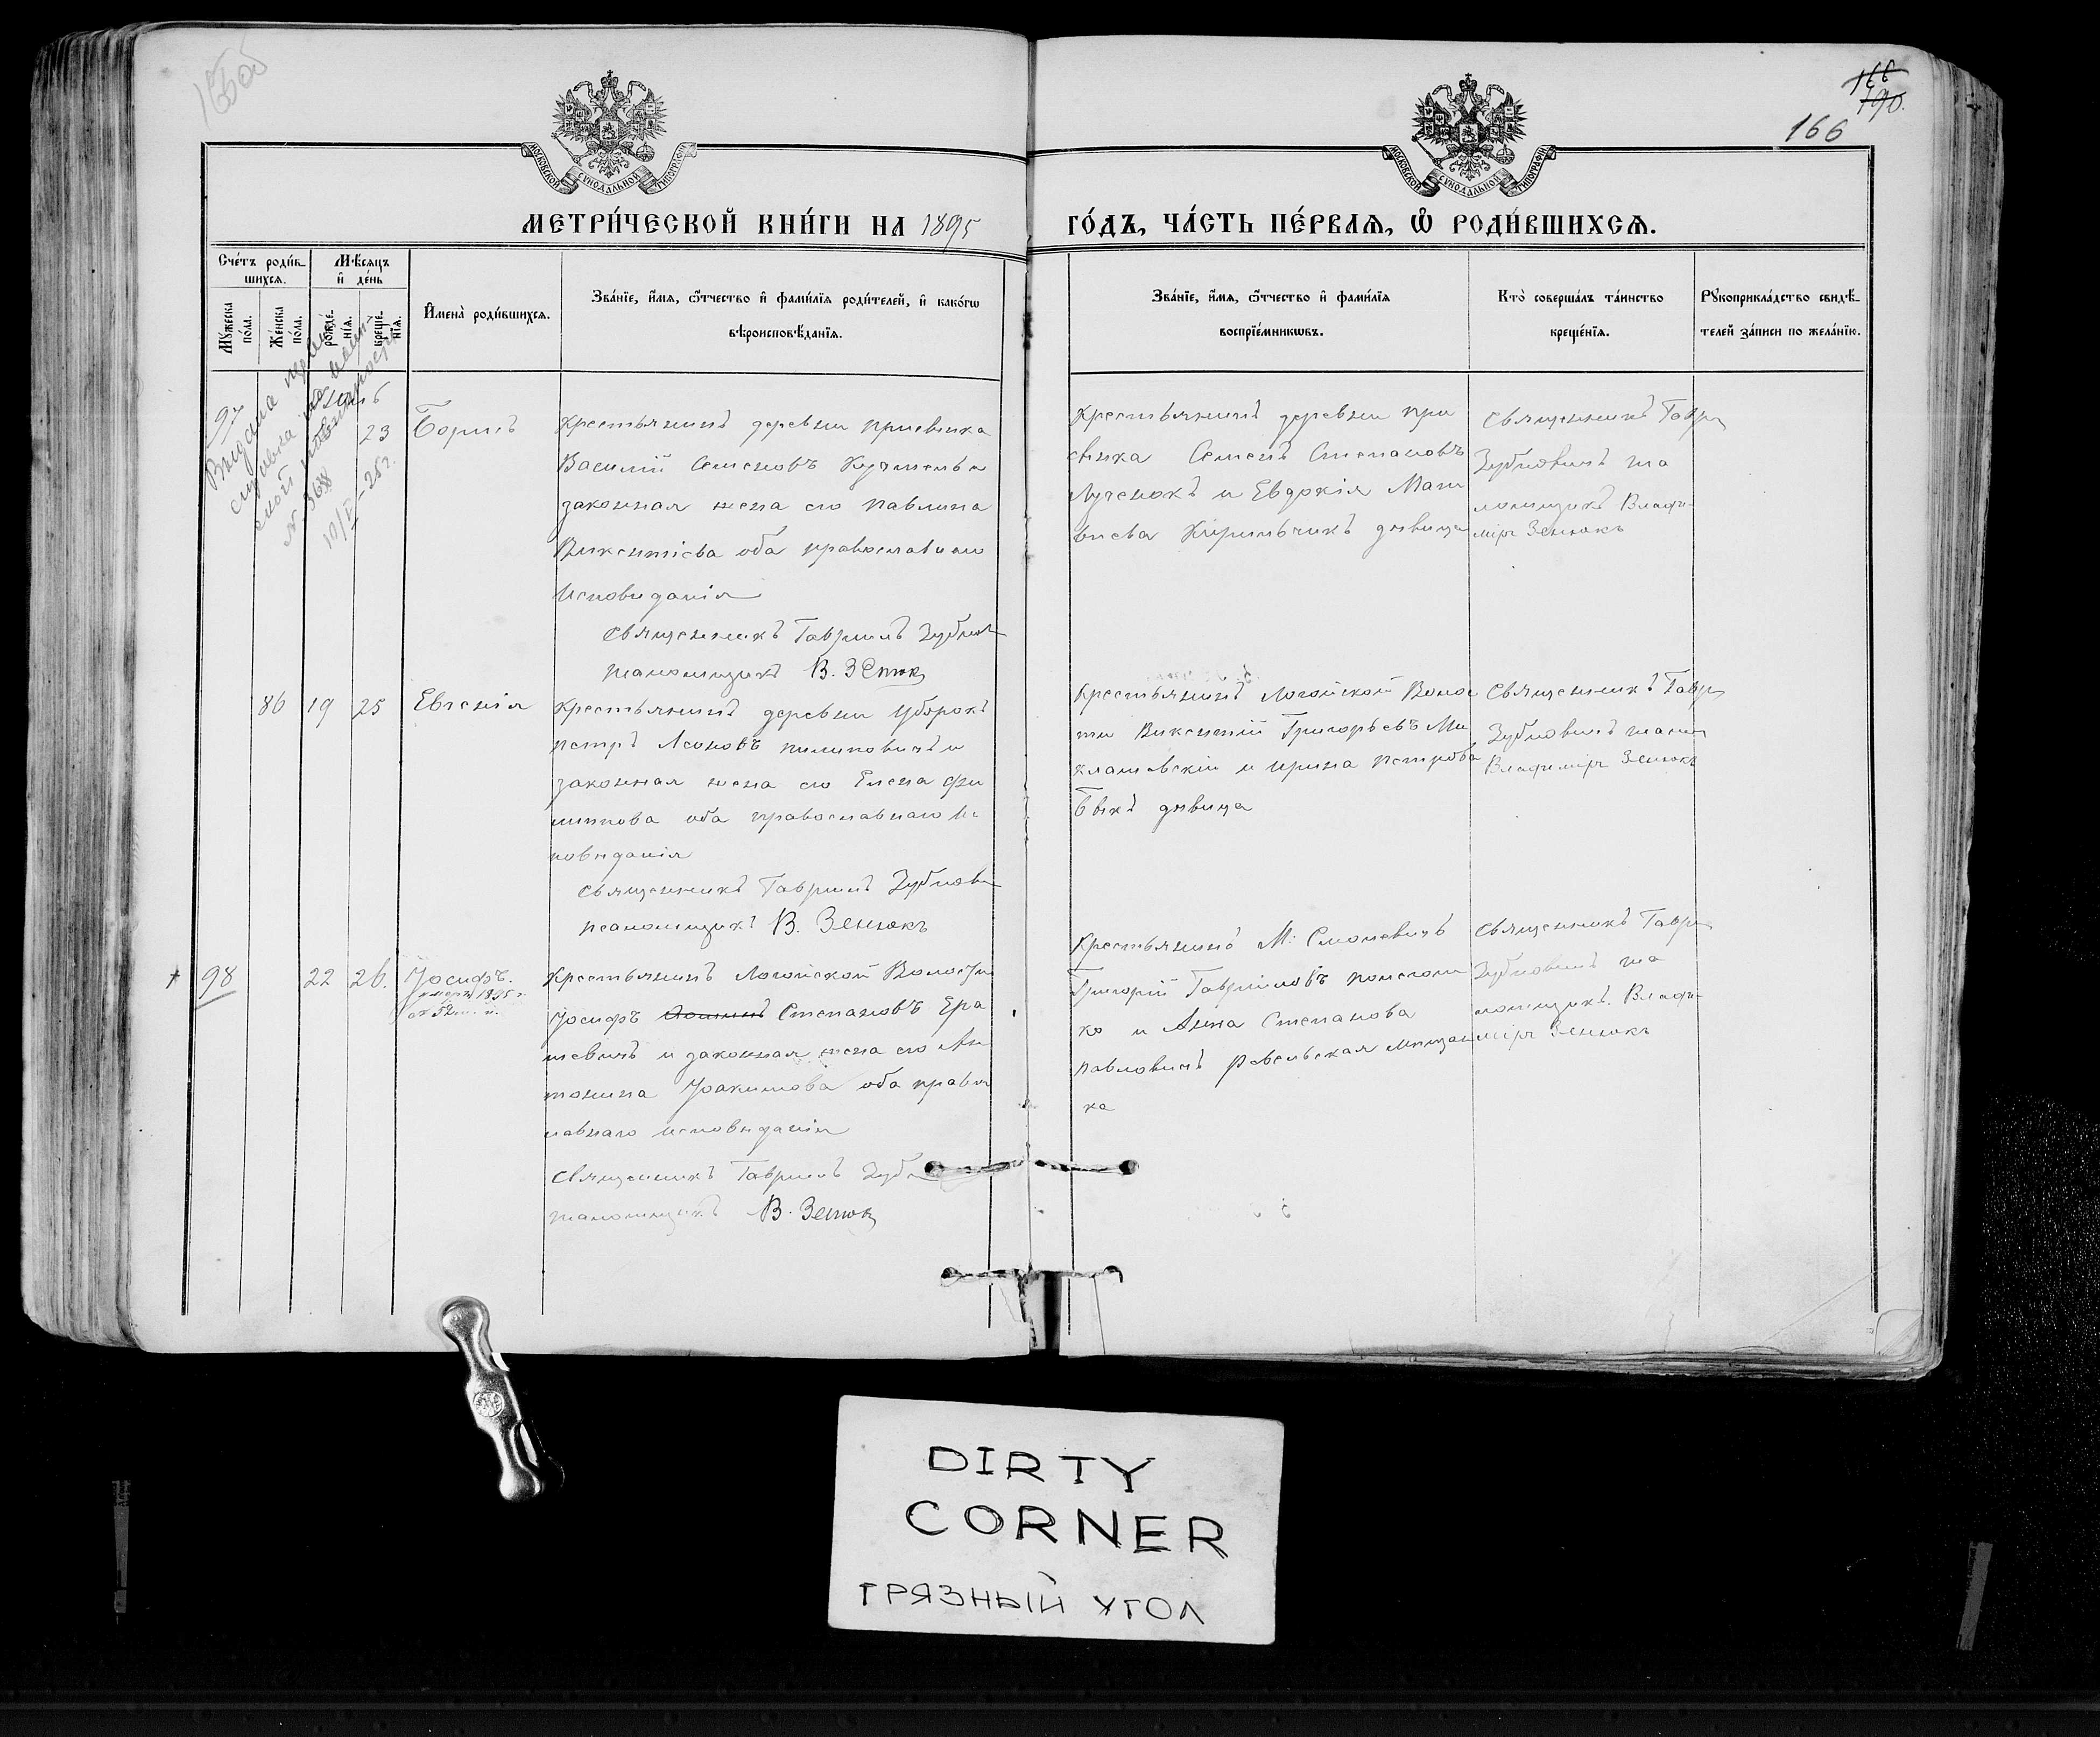 166
190.
166
МОСКОВСКОЙ СѴНОДАЛЬНОЙ ТИПОГРАФІИ
МОСКОВСКОЙ СѴНОДАЛЬНОЙ ТИПОГРАФІИ
МЕТРИ́ЧЕСКОЙ КНИ́ГИ НА 1895
ГО́ДЪ, ЧА́СТЬ ПЕ́РВАѦ, Ѡ РОДИ́ВШИХСѦ.
Сче́тъ роди́в-
шихсѧ.
Мѣ́сѧцъ
и҆ де́нь
Мꙋ́жеска
по́ла.
Же́нска
по́ла.
рожде́-
нїѧ.
креще́-
нїѧ.
И҆мена̀ роди́вшихсѧ.
Зва́нїе, и҆́мѧ, ѻ҆́тчество и҆ фами́лїѧ роди́телей, и҆ како́гѡ
вѣроисповѣ́данїѧ.
Зва́нїе, и҆́мѧ, ѻ҆́тчество и҆ фами́лїѧ
воспрїе́мникѡвъ.
Кто̀ соверша́лъ та́инство
креще́нїѧ.
Рꙋкоприкла́дство свидѣ́-
телей за́писи по жела́нїю.
97
Выдана
№ 3638
10/V-25г.
23
Борисъ
Крестьянинъ деревни
Василій Семеновъ
законная жена его Павлина
Викентіева оба православнаго
исповѣданія
Священникъ Гавриилъ
псаломщикъ В. Зенюкъ
Крестьянинъ деревни
Семенъ Степановъ
Лученокъ и Евдокія Мат
вѣева Кирильчикъ дѣвица
Священникъ Гавр
Зубковичъ пса
ломщикъ Влади-
міръ Зенюкъ
86 19 25
Евгенія
Крестьянинъ деревни Уборокъ
Петръ Леоновъ Пиликовичъ и
законная жена его Елена Фи
липпова оба православнаго ис
повѣданія
Священникъ Гавриилъ
псаломщикъ В. Зенюкъ
Крестьянинъ Логойской Волос
ти Викентій Григорьевъ Ми
клашевскій и Ирина Петрова
Быкъ дѣвица
Священникъ Гавр
Зубковичъ псалом
Владиміръ Зенюкъ
98 22 26.
Іосифъ.
умеръ 1895 г.
Крестьянинъ Логойской Волости
Іосифъ Степановъ Ера
шевичъ и законная жена его Ан
тонина Іоакимова оба правос
лавнаго исповѣданія
Священникъ Гавриилъ
псаломщикъ В. Зенюкъ
Крестьянинъ М. Смолевичъ
Григорій Гавриловъ
ко и Анна Степанова
Павловичъ мѣщан
ка
Священникъ Гавр
Зубковичъ пса
ломщикъ Влади-
міръ Зенюкъ
DIRTY
CORNER
ГРЯЗНЫЙ УГОЛ